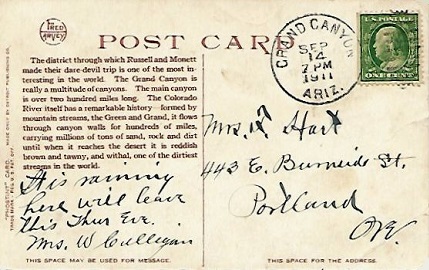 FRED
HARVEY
POST CARD
The district through which Russell and Monett
made their dare-devil trip is one of the most in-
teresting in the world. The Grand Canyon is
really a multitude of canyons. The main canyon
is over two hundred miles long. The Colorado
River itself has a remarkable history—formed by
mountain streams, the Green and Grand, it flows
through canyon walls for hundreds of miles,
carrying millions of tons of sand, rock and dirt
until when it reaches the desert it is reddish
brown and tawny, and withal, one of the dirtiest
streams in the world.
It is raining
here will leave
this Thur Eve.
Mrs. W Culligan
THIS SPACE MAY BE USED FOR MESSAGE.
"PHOSTINT" CARD
MADE ONLY BY DETROIT PUBLISHING CO.
GRAND CANYON
SEP
14
2 PM
1911
ARIZ.
U.S. POSTAGE
ONE CENT
Mrs. Hart
443 E. Burnside St.
Portland
Ore
THIS SPACE FOR THE ADDRESS.